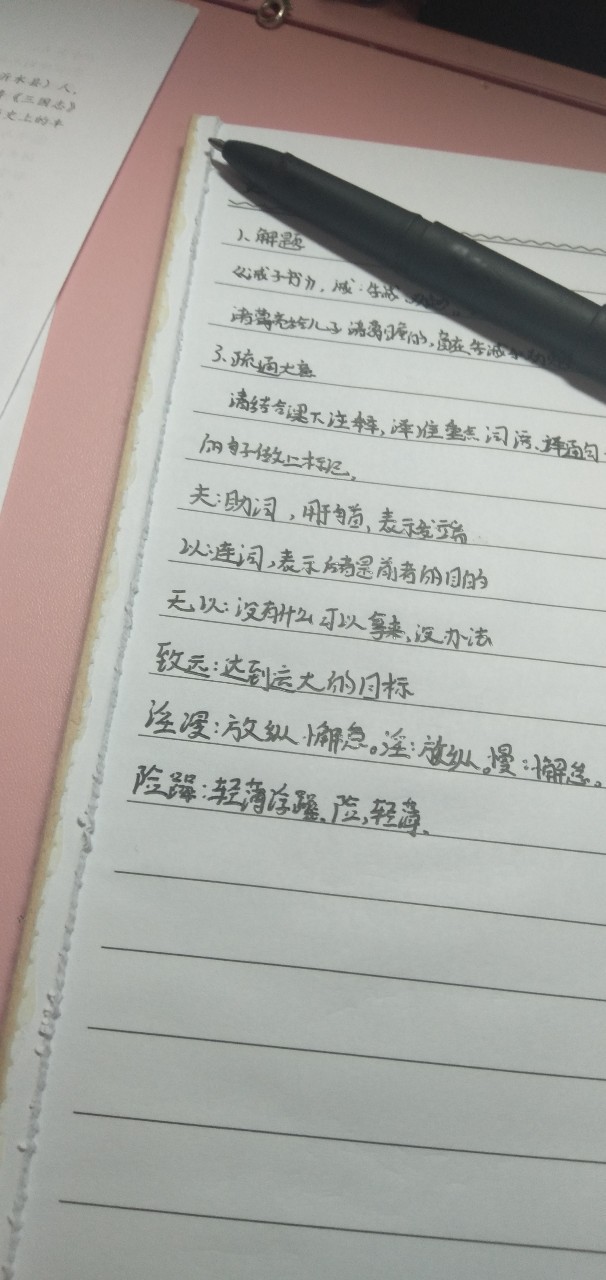 沂水县）人，
《三国志》
史上的丰
1、解题
《诫子书》，诫：告诫
诸葛亮给儿子诸葛瞻的，
3、疏通大意
请结合课下注释，译准重点词语、译通句
的句子做上标记。
夫：助词，用于句首，表示发端
以：连词，表示后者是前者的目的
无以：没有什么可以拿来，没办法
致远：达到远大的目标
淫漫：放纵懈怠。淫：放纵。慢：懈怠。
险躁：轻薄浮躁。险，轻薄。